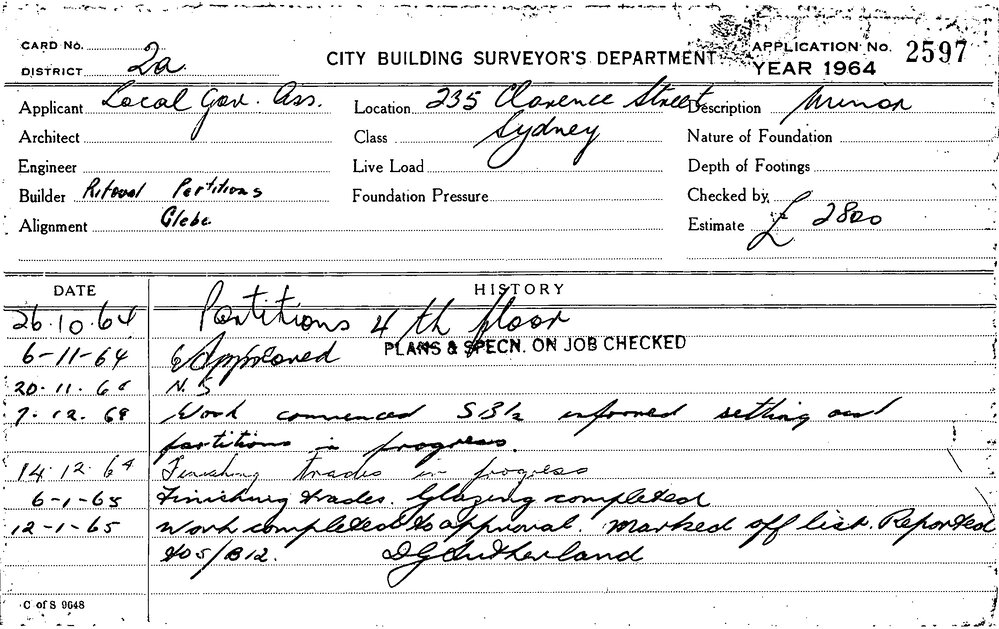 CARD No.
DISTRICT 2a
CITY BUILDING SURVEYOR'S DEPARTMENT
APPLICATION No. 2597
YEAR 1964
Applicant Local Gov. Ass.
Location 235 Clarence Street
Sydney
Description Minor
Architect
Class
Nature of Foundation
Engineer
Live Load
Depth of Footings
Builder Partitions
Glebe
Foundation Pressure
Checked by
Alignment
Estimate £ 2800
DATE HISTORY
26.10.64 Partitions 4th floor
6-11-64 Approved PLANS & SPECN. ON JOB CHECKED
20.11.64 N.S
7.12.64 Work commenced informed setting out
partitions in progress.
14.12.64 Finishing trades in progress
6-1-65 Finishing trades. Glazing completed
12-1-65 Work completed to approval. Marked off list. Reported
to S/B12. DG Sutherland
C of S 9648